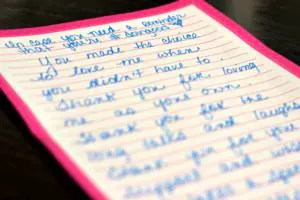 In case you need a reminder
that you're
You made the choice
to love me when
you didn't have to.
Thank you for loving
me as your own.
Thank you for the
long talks and laughs
Thank you for your
support and